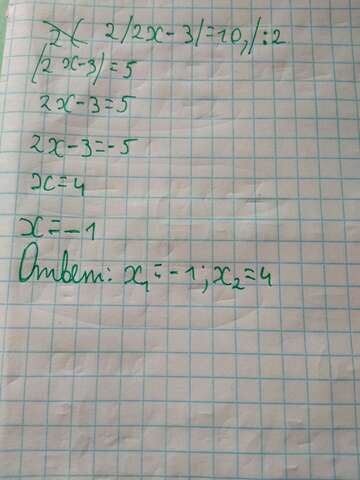 2|2x-3|=10,|:2
|2x-3|=5
2x-3=5
2x-3=-5
x=4
x=-1
Ответ: x₁=-1; x₂=4